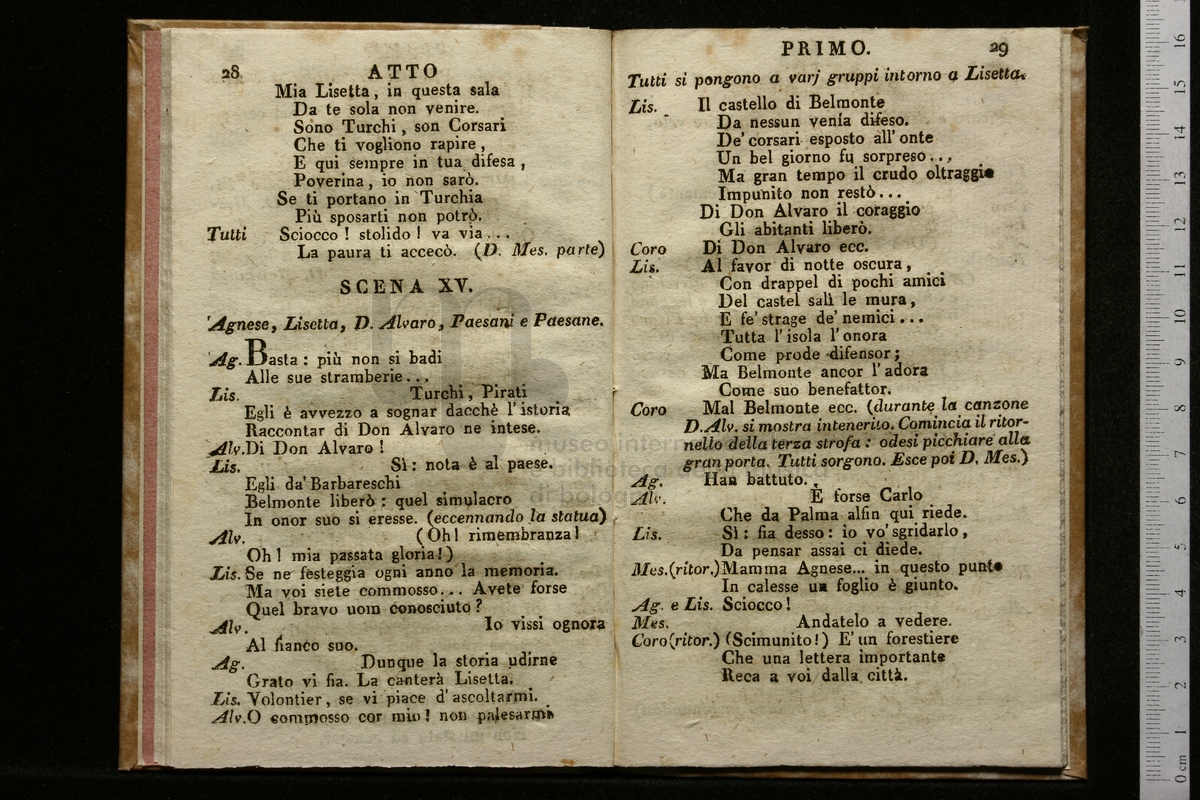 28 ATTO
Mia Lisetta, in questa sala
Da te sola non venire.
Sono Turchi, son Corsari
Che ti vogliono rapire,
E qui sempre in tua difesa,
Poverina, io non sarò.
Se ti portano in Turchia
Più sposarti non potrò.
Tutti Sciocco! stolido! va via...
La paura ti accecò. (D. Mes. parte)
SCENA XV.
Agnese, Lisetta, D. Alvaro, Paesani e Paesane.
Ag. Basta: più non si badi
Alle sue stramberie...
Lis. Turchi, Pirati
Egli è avvezzo a sognar dacchè l'istoria
Raccontar di Don Alvaro ne intese.
Alv. Di Don Alvaro!
Lis. Sì: nota è al paese.
Egli da' Barbareschi
Belmonte liberò: quel simulacro
In onor suo si eresse. (eccennando la statua)
Alv. (Oh! rimembranza!
Oh! mia passata gloria!)
Lis. Se ne festeggia ogni anno la memoria.
Ma voi siete commosso... Avete forse
Quel bravo uom conosciuto?
Alv. Io vissi ognora
Al fianco suo.
Ag. Dunque la storia udirne
Grato vi fia. La canterà Lisetta.
Lis. Volontier, se vi piace d'ascoltarmi.
Alv. O commosso cor mio! non palesarmi
PRIMO. 29
Tutti si pongono a varj gruppi intorno a Lisetta.
Lis. Il castello di Belmonte
Da nessun venia difeso.
De' corsari esposto all'onte
Un bel giorno fu sorpreso...
Ma gran tempo il crudo oltraggio
Impunito non restò...
Di Don Alvaro il coraggio
Gli abitanti liberò.
Coro Di Don Alvaro ecc.
Lis. Al favor di notte oscura,
Con drappel di pochi amici
Del castel salì le mura,
E fe' strage de' nemici...
Tutta l'isola l'onora
Come prode difensor;
Ma Belmonte ancor l'adora
Come suo benefattor.
Coro Mal Belmonte ecc. (durante la canzone
D. Alv. si mostra intenerito. Comincia il ritor-
nello della terza strofa: odesi picchiare alla
gran porta. Tutti sorgono. Esce poi D. Mes.)
Ag. Han battuto.
Alv. È forse Carlo
Che da Palma alfin qui riede.
Lis. Sì: fia desso: io vo' sgridarlo,
Da pensar assai ci diede.
Mes. (ritor.) Mamma Agnese... in questo punto
In calesse un foglio è giunto.
Ag. e Lis. Sciocco!
Mes. Andatelo a vedere.
Coro (ritor.) (Scimunito!) E' un forestiere
Che una lettera importante
Reca a voi dalla città.
museo intern
biblioteca della musica
di bologna
0 cm 1 2 3 4 5 6 7 8 9 10 11 12 13 14 15 16